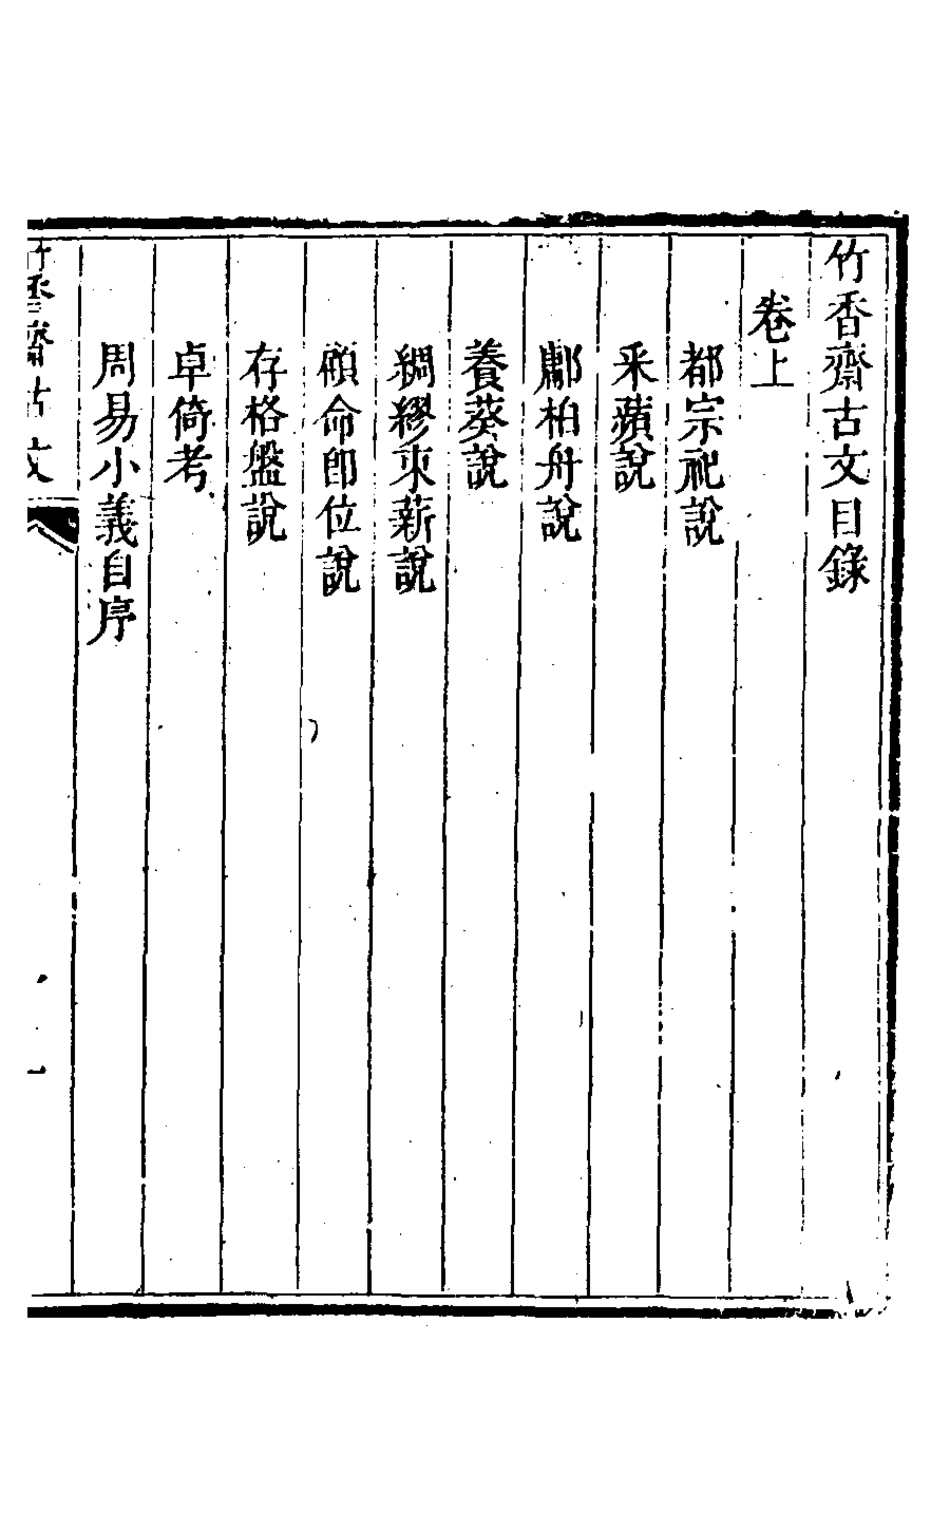 竹香齋古文目錄
卷上
都宗祀說
采蘋說
鄘柏舟說
養葵說
綢繆束薪說
顧命卽位說
存格盤說
卓倚考
周易小義自序
竹香齋古文
一